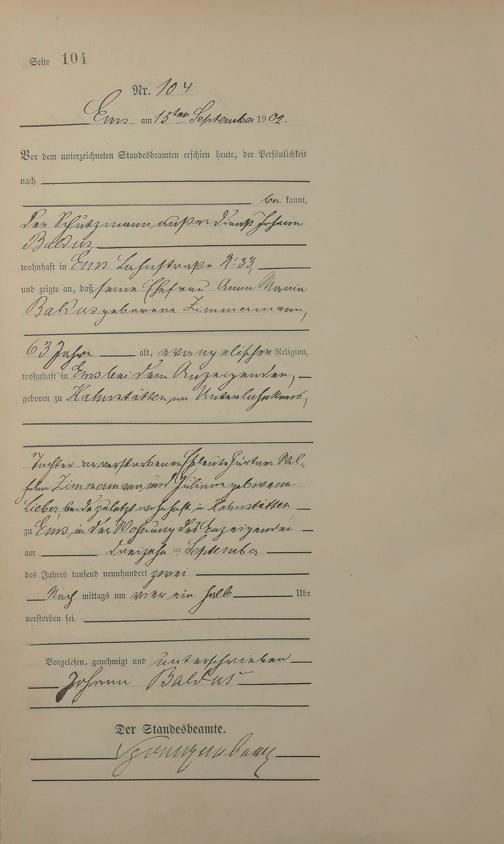 Seite 104
Nr. 104
Ems am 15ten September 1902.
Vor dem unterzeichneten Standesbeamten erschien heute, der Persönlichkeit
nach
be kannt,
der Schutzmann außer Dienst Johann
Baldus
wohnhaft in Ems Lahnstraße No 33,
und zeigte an, daß seine Ehefrau Anna Maria
Baldus geborene Zimmermann,
63 Jahre alt, evangelischer Religion,
wohnhaft in Ems bei dem Anzeigenden,
geboren zu Hahnstätten im Unterlahnkreis,
Tochter der verstorbenen Eheleute Wil-
helm Zimmermann und Juliane geborene
Lieber beide zuletzt wohnhaft in Hahnstätten
zu Ems in der Wohnung des Anzeigenden
am dreizehn ten September
des Jahres tausend neunhundert zwei
Nach mittags um vier ein halb Uhr
verstorben sei.
Vorgelesen, genehmigt und unterschrieben
Johann Baldus
Der Standesbeamte.